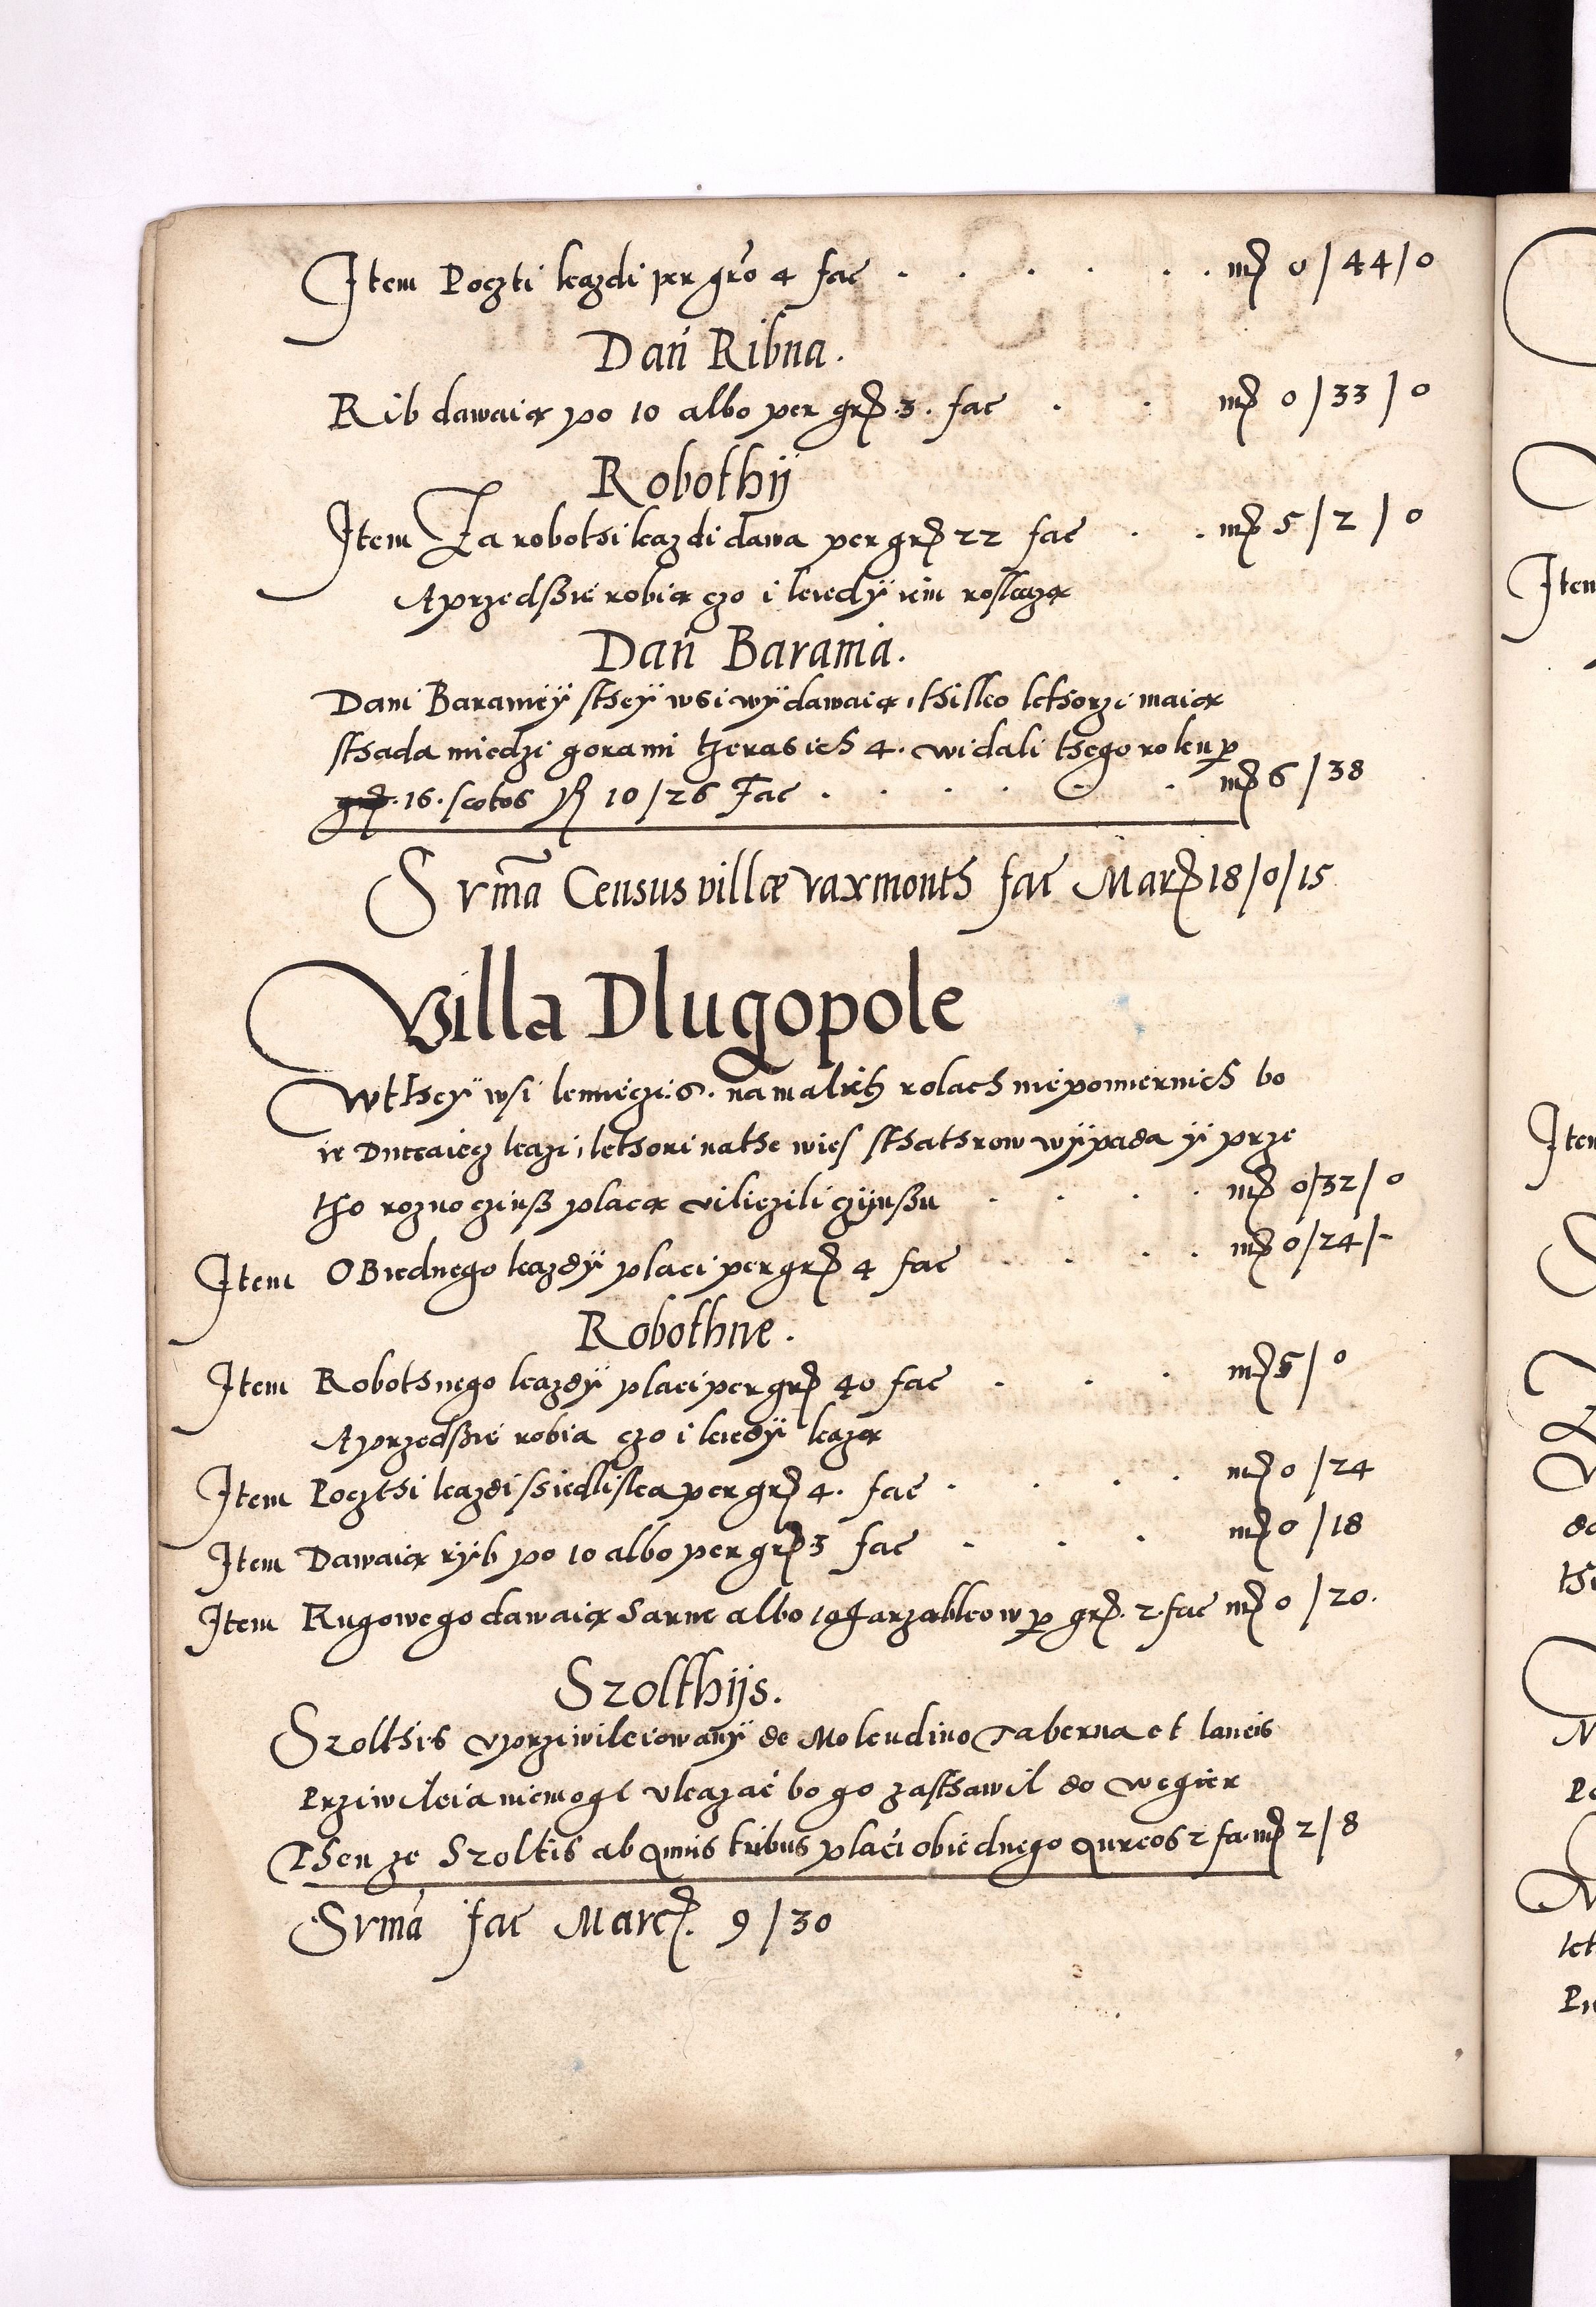 Item Poczti kazdi per gro 4 fac . . . . . . mr 0/44/0
Dań Ribna.
Rib dawaią po 10 albo per gr. 3. fac . . mr 0/33/0
Robothÿ
Item Za robothi kazdi dawa per gr 22 fac . . mr 5/2/0
A przedsßie robią czo i kiedÿ im roskażą
Dań Barania.
Dani Baraniëÿ sthëÿ wsi wÿdawaią, thilko kthorzi maią
sthada miedzi gorami theras ich 4. widali thego roku p
gr. 16. scotos R 10/26 Fac . . . . . . mr 6/38
Svma Census villæ vaxmonth fac Marc 18/0/15
Villa Dlugopole
W they wsi kmieczi. 6. na malich rolach niepomiernich bo
ie Dunaiecz kazi, kthori na the wies sthathrow wÿpada ÿ prze
tho rozno czinß placą viliczili czÿnßu . . . . mr 0/32/0
Item Obiednego kazdÿ placi per gr 4 fac . . . mr 0/24/-
Robothne.
Item Robothnego kazdÿ placi per gr 40 fac . . . mr 5/0
A przedsßie robia czo i kiedÿ każą
Item Poczthi kazdi ssiedliska per gr 4. fac . . . . mr 0/24
Item Dawaią rÿb po 10 albo per gr 3 fac . . . mr 0/18
Item Rugowego dawaią Sarne albo 10 Jarzabkow p gr. 2. fac mr 0/20.
Szolthÿs.
Szolthis vprziwileiowanÿ de Molendino Taberna et laneis
Prziwileia niemogl vkazać bo go zasthawil do Wegier
Then ze Szoltis ab omnis tribus placi obiednego aureos 2 fa. mr 2/8
Svma fac Marc. 9/30